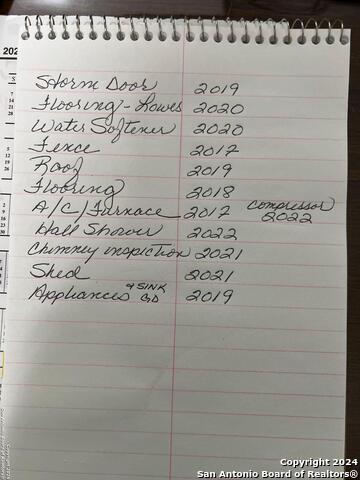 Storm Door 2019
Flooring - Lowes 2020
Water Softener 2020
Fence 2017
Roof 2019
Flooring 2018
A/C/Furnace 2017 compressor 2022
Hall Shower 2022
Chimney inspiction 2021
Shed 2021
Appliances & SINK GD 2019
Copyright 2024
San Antonio Board of Realtors®